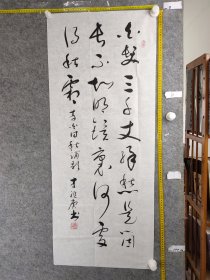 白髮三千丈緣愁是個
長不知明鏡裏何處
得秋霜
李白詩秋浦歌